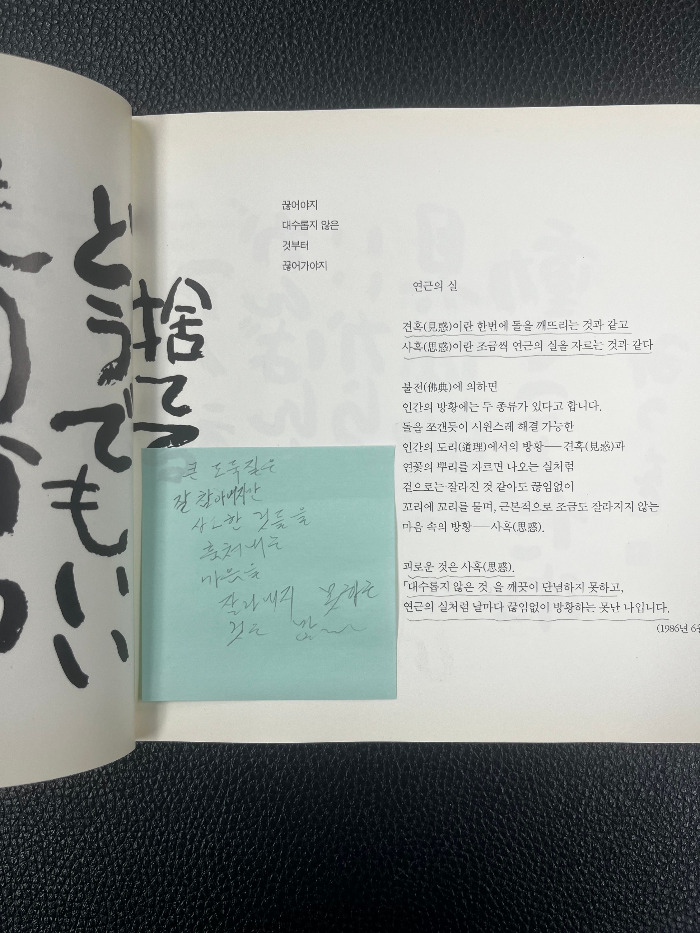 どうでもいい
捨てて
끊어야지
대수롭지 않은
것부터
끊어가야지
연근의 실
견혹(見惑)이란 한번에 돌을 깨뜨리는 것과 같고
사혹(思惑)이란 조금씩 연근의 실을 자르는 것과 같다
불전(佛典)에 의하면
인간의 방황에는 두 종류가 있다고 합니다.
돌을 쪼갠듯이 시원스레 해결 가능한
인간의 도리(道理)에서의 방황──견혹(見惑)과
연꽃의 뿌리를 자르면 나오는 실처럼
겉으로는 잘라진 것 같아도 끊임없이
꼬리에 꼬리를 물며, 근본적으로 조금도 잘라지지 않는
마음 속의 방황──사혹(思惑).
괴로운 것은 사혹(思惑).
「대수롭지 않은 것」을 깨끗이 단념하지 못하고,
연근의 실처럼 날마다 끊임없이 방황하는 못난 나입니다.
(1986년 6
큰 도둑질은
잘 참아내지만
사소한 것들을
훔쳐내는
마음을
잘라내지 못하는
것은